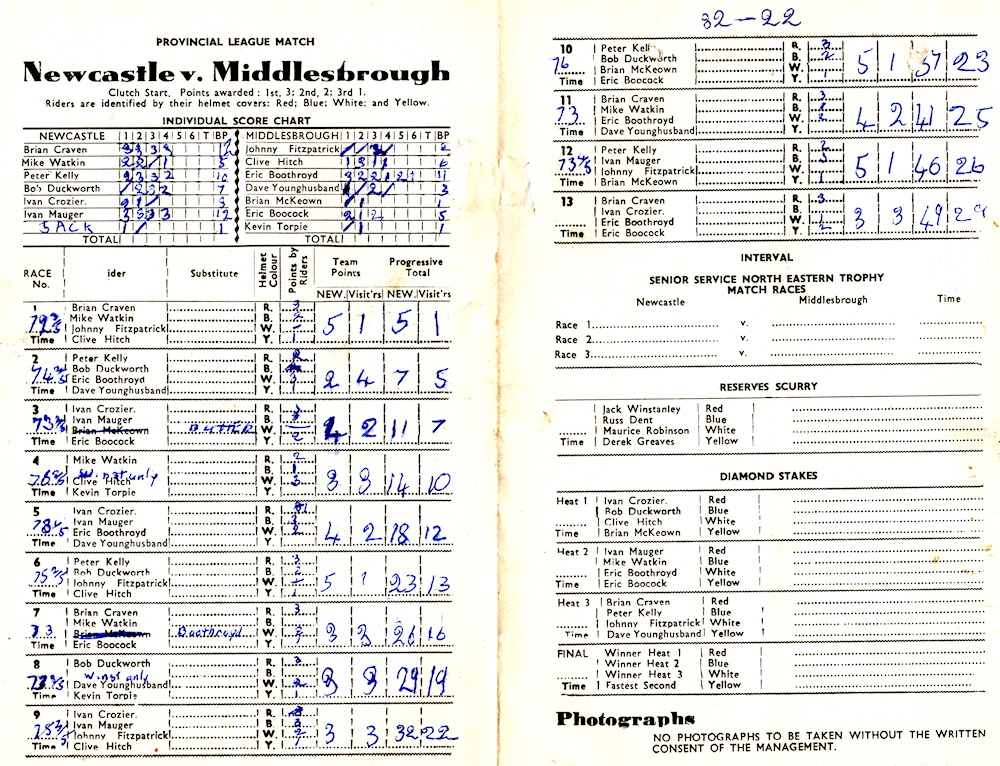 32-22
PROVINCIAL LEAGUE MATCH
Newcastle v. Middlesbrough
Clutch Start. Points awarded: 1st, 3; 2nd, 2; 3rd 1.
Riders are identified by their helmet covers: Red; Blue; White; and Yellow.
INDIVIDUAL SCORE CHART
NEWCASTLE 1 2 3 4 5 6 T BP MIDDLESBROUGH 1 2 3 4 5 6 T BP
Brian Craven 12 Johnny Fitzpatrick
Mike Watkin 5 Clive Hitch 6
Peter Kelly 10 Eric Boothroyd 11
Bob Duckworth 7 Dave Younghusband 3
Ivan Crozier. Brian McKeown 1
Ivan Mauger 12 Eric Boocock 5
JACK 1 Kevin Torpie 1
TOTAL TOTAL
RACE No. ider Substitute Helmet Colour Points by Riders Team Points Progressive Total
NEW. Visit'rs NEW. Visit'rs
1 Brian Craven R. 3
Mike Watkin B. 2
Johnny Fitzpatrick W. 5 1 5 1
Time Clive Hitch Y. 1
2 Peter Kelly R. 2
Bob Duckworth B.
Eric Boothroyd W. 3 2 4 7 5
Time Dave Younghusband Y. 1
3 Ivan Crozier. R.
Ivan Mauger B. 3
Brian McKeown W. 4 2 11 7
Time Eric Boocock Y. 2
4 Mike Watkin R. 2
B. 1
Clive Hitch W. 3 3 3 14 10
Time Kevin Torpie Y.
5 Ivan Crozier. R. 1
Ivan Mauger B. 3
Eric Boothroyd W. 2 4 2 18 12
Time Dave Younghusband Y.
6 Peter Kelly R. 3
Bob Duckworth B. 2
Johnny Fitzpatrick W. 5 1 23 13
Time Clive Hitch Y. 1
7 Brian Craven R. 3
Mike Watkin B.
73 Brian McKeown Boothroyd W. 2 3 3 26 16
Time Eric Boocock Y. 1
8 Bob Duckworth R. 3
B.
Dave Younghusband W. 2 3 3 29 19
Time Kevin Torpie Y. 1
9 Ivan Crozier. R.
Ivan Mauger B. 3
Johnny Fitzpatrick W. 2 3 3 32 22
Time Clive Hitch Y. 1
10 Peter Kelly R. 3
76 Bob Duckworth B. 2 5 1 37 23
Brian McKeown W.
Time Eric Boocock Y. 1
11 Brian Craven R. 3
73 Mike Watkin B. 4 2 41 25
Eric Boothroyd W. 2
Time Dave Younghusband Y.
12 Peter Kelly R. 2
Ivan Mauger B. 3 5 1 46 26
Johnny Fitzpatrick W.
Time Brian McKeown Y. 1
13 Brian Craven R. 3
Ivan Crozier. B. 3 3 49 29
Eric Boothroyd W. 1
Time Eric Boocock Y. 2
INTERVAL
SENIOR SERVICE NORTH EASTERN TROPHY
MATCH RACES
Newcastle Middlesbrough Time
Race 1 v.
Race 2 v.
Race 3 v.
RESERVES SCURRY
Jack Winstanley Red
Russ Dent Blue
Maurice Robinson White
Time Derek Greaves Yellow
DIAMOND STAKES
Heat 1 Ivan Crozier. Red
Bob Duckworth Blue
Clive Hitch White
Time Brian McKeown Yellow
Heat 2 Ivan Mauger Red
Mike Watkin Blue
Eric Boothroyd White
Time Eric Boocock Yellow
Heat 3 Brian Craven Red
Peter Kelly Blue
Johnny Fitzpatrick White
Time Dave Younghusband Yellow
FINAL Winner Heat 1 Red
Winner Heat 2 Blue
Winner Heat 3 White
Time Fastest Second Yellow
Photographs
NO PHOTOGRAPHS TO BE TAKEN WITHOUT THE WRITTEN
CONSENT OF THE MANAGEMENT.